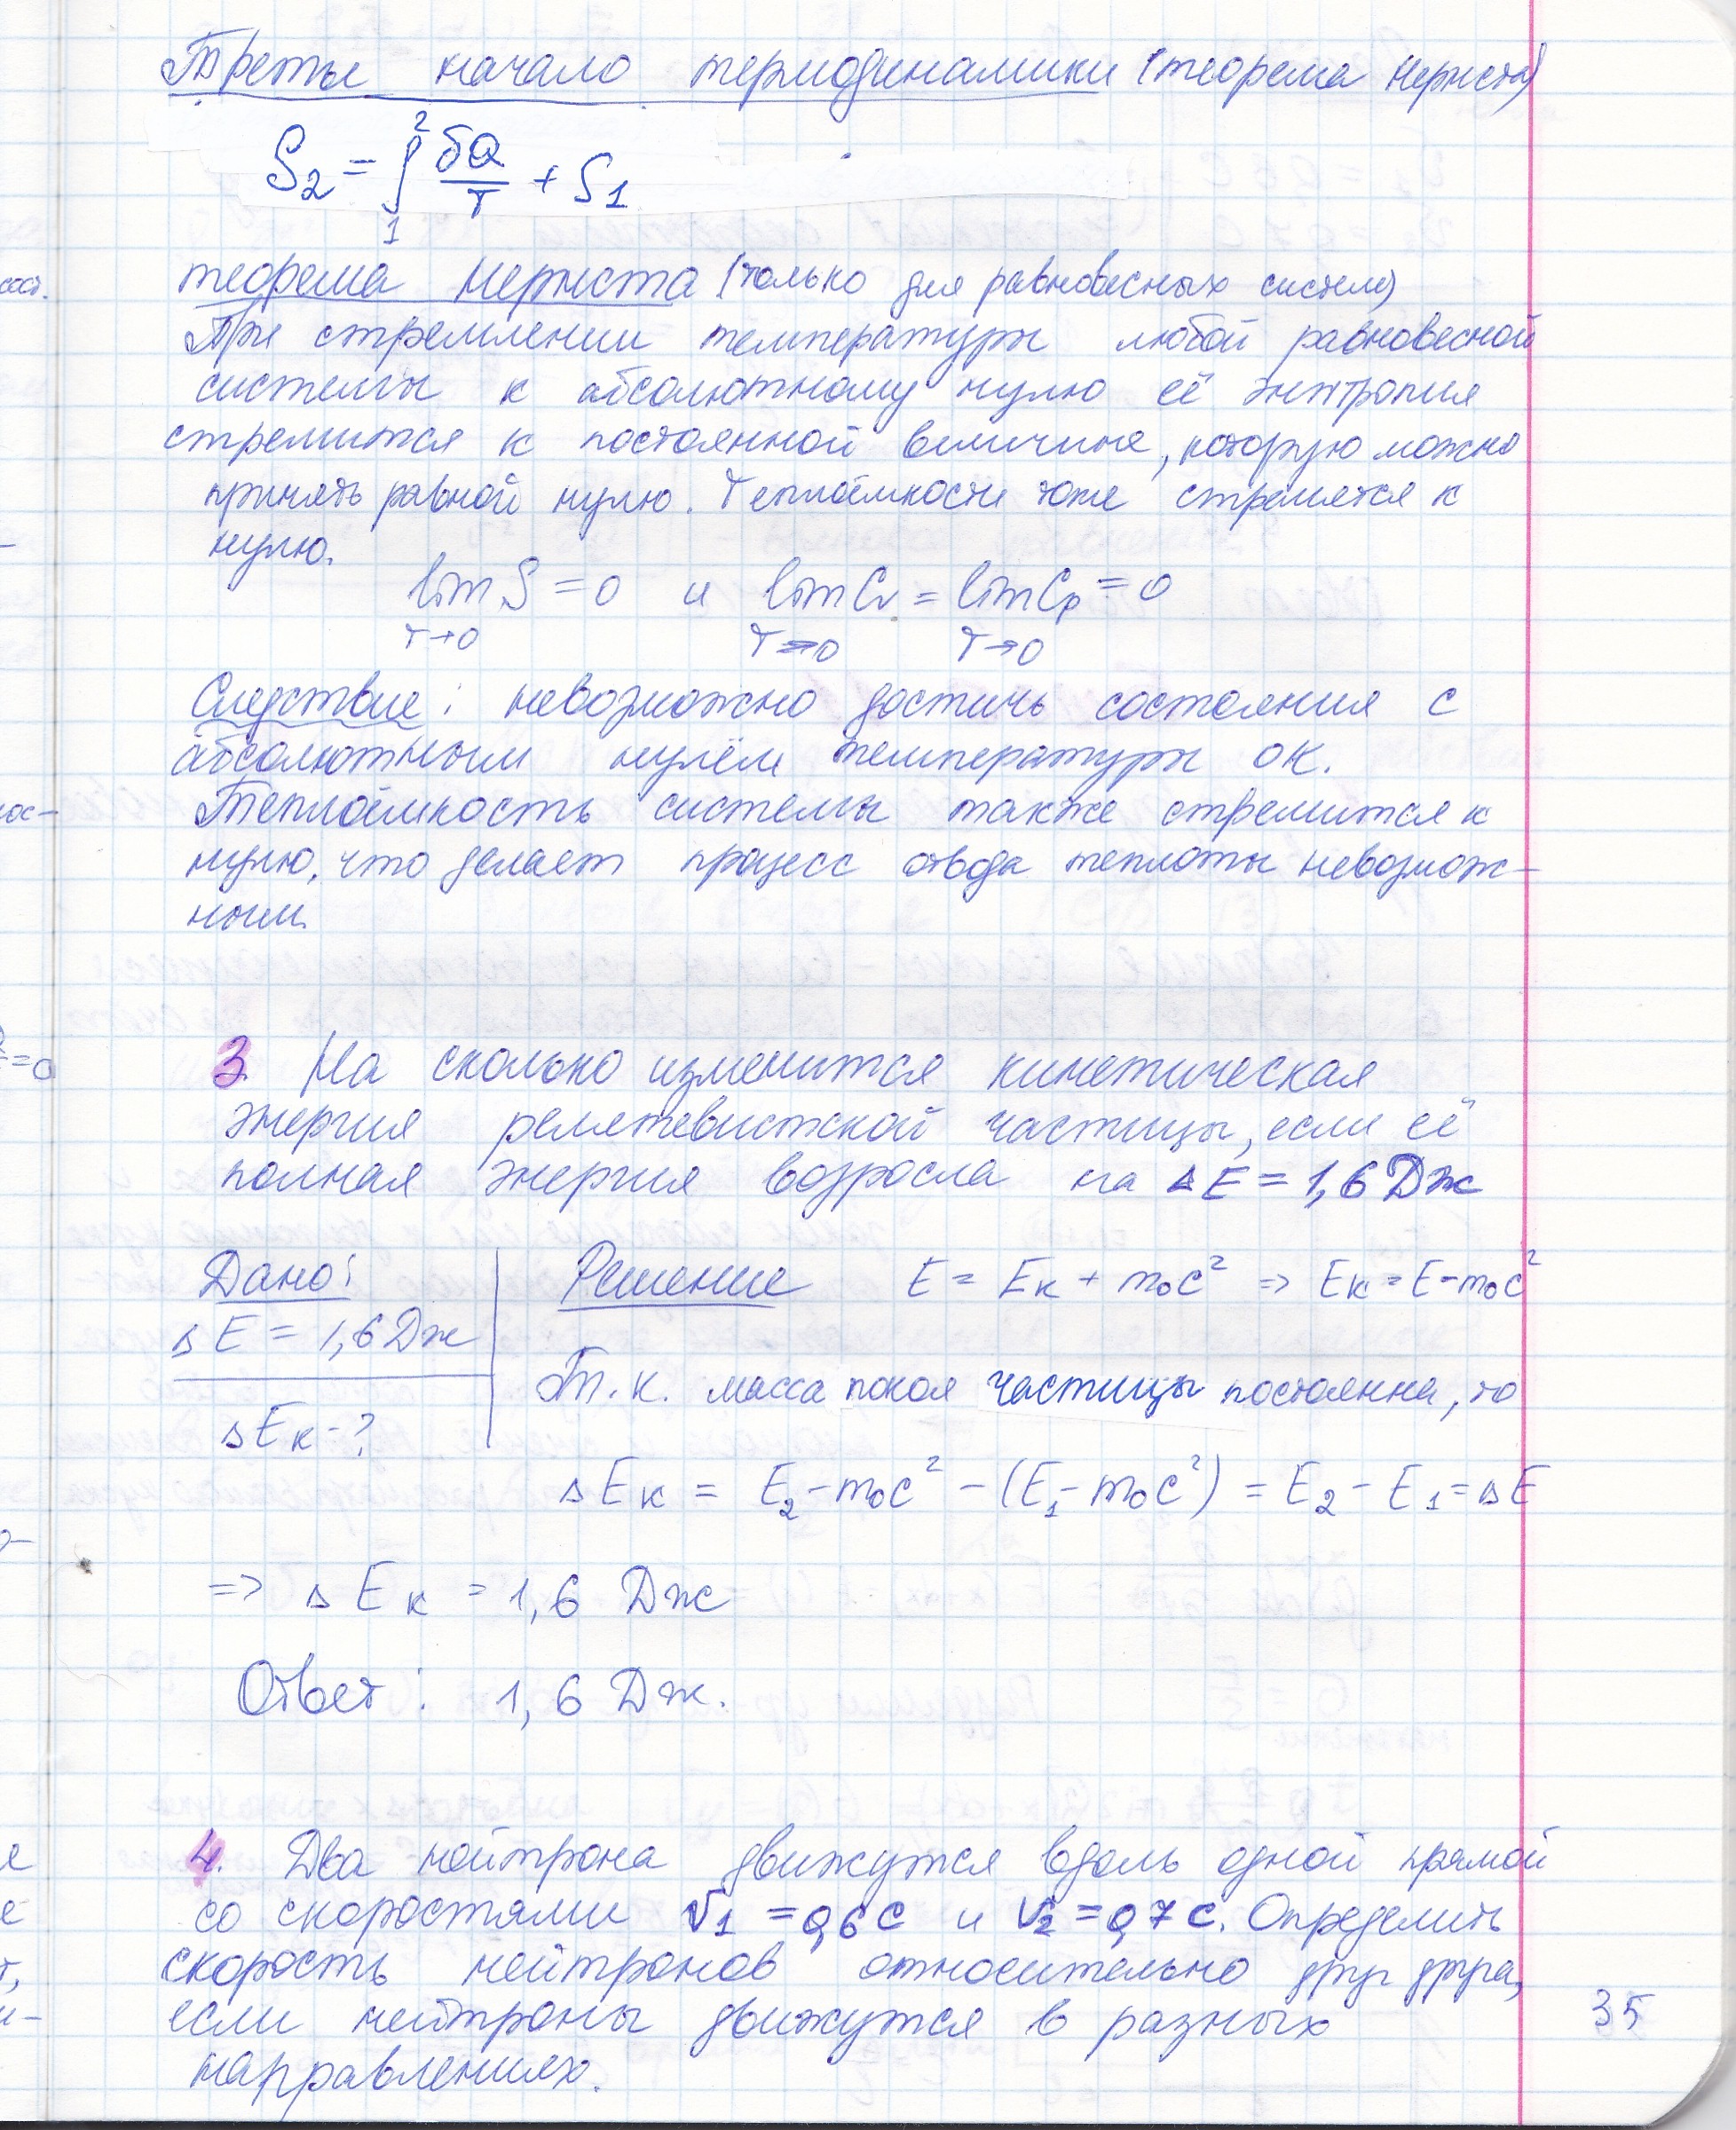 Третье начало термодинамики (теорема Нернста)
S₂ = ∫₁² δQ/T + S₁
теорема Нернста (только для равновесных систем)
При стремлении температуры любой равновесной
системы к абсолютному нулю её энтропия
стремится к постоянной величине, которую можно
принять равной нулю. Теплоёмкости тоже стремятся к
нулю.
lim S = 0 и lim Cv = lim Cp = 0
T→0 T→0 T→0
Следствие: невозможно достичь состояния с
абсолютным нулём температуры 0К.
Теплоёмкость системы также стремится к
нулю, что делает процесс отвода теплоты невозмож-
ным.
3. На сколько изменится кинетическая
энергия релятевистской частицы, если её
полная энергия возросла на ΔE = 1,6 Дж
Дано: Решение E = Eк + m₀c² => Eк = E - m₀c²
ΔE = 1,6 Дж
Т.к. масса покоя частицы постоянна, то
ΔEк - ?
ΔEк = E₂ - m₀c² - (E₁ - m₀c²) = E₂ - E₁ = ΔE
=> ΔEк = 1,6 Дж
Ответ: 1,6 Дж.
4. Два нейтрона движутся вдоль одной прямой
со скоростями V₁ = 0,6 c и V₂ = 0,7 c. Определить
скорость нейтронов относительно друг друга,
если нейтроны движутся в разных
направлениях.
35